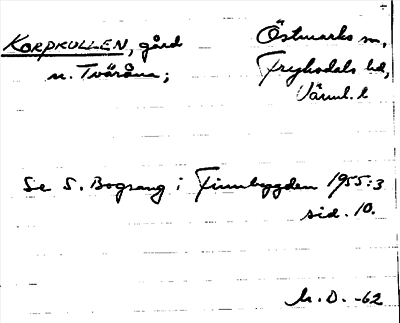 KORPKULLEN, gård
n. Tväråna;
Östmarks sn,
Fryksdals hd,
Värml. l
Se S. Bograng i Finnbygden 1955:3
sid. 10.
M.D. -62